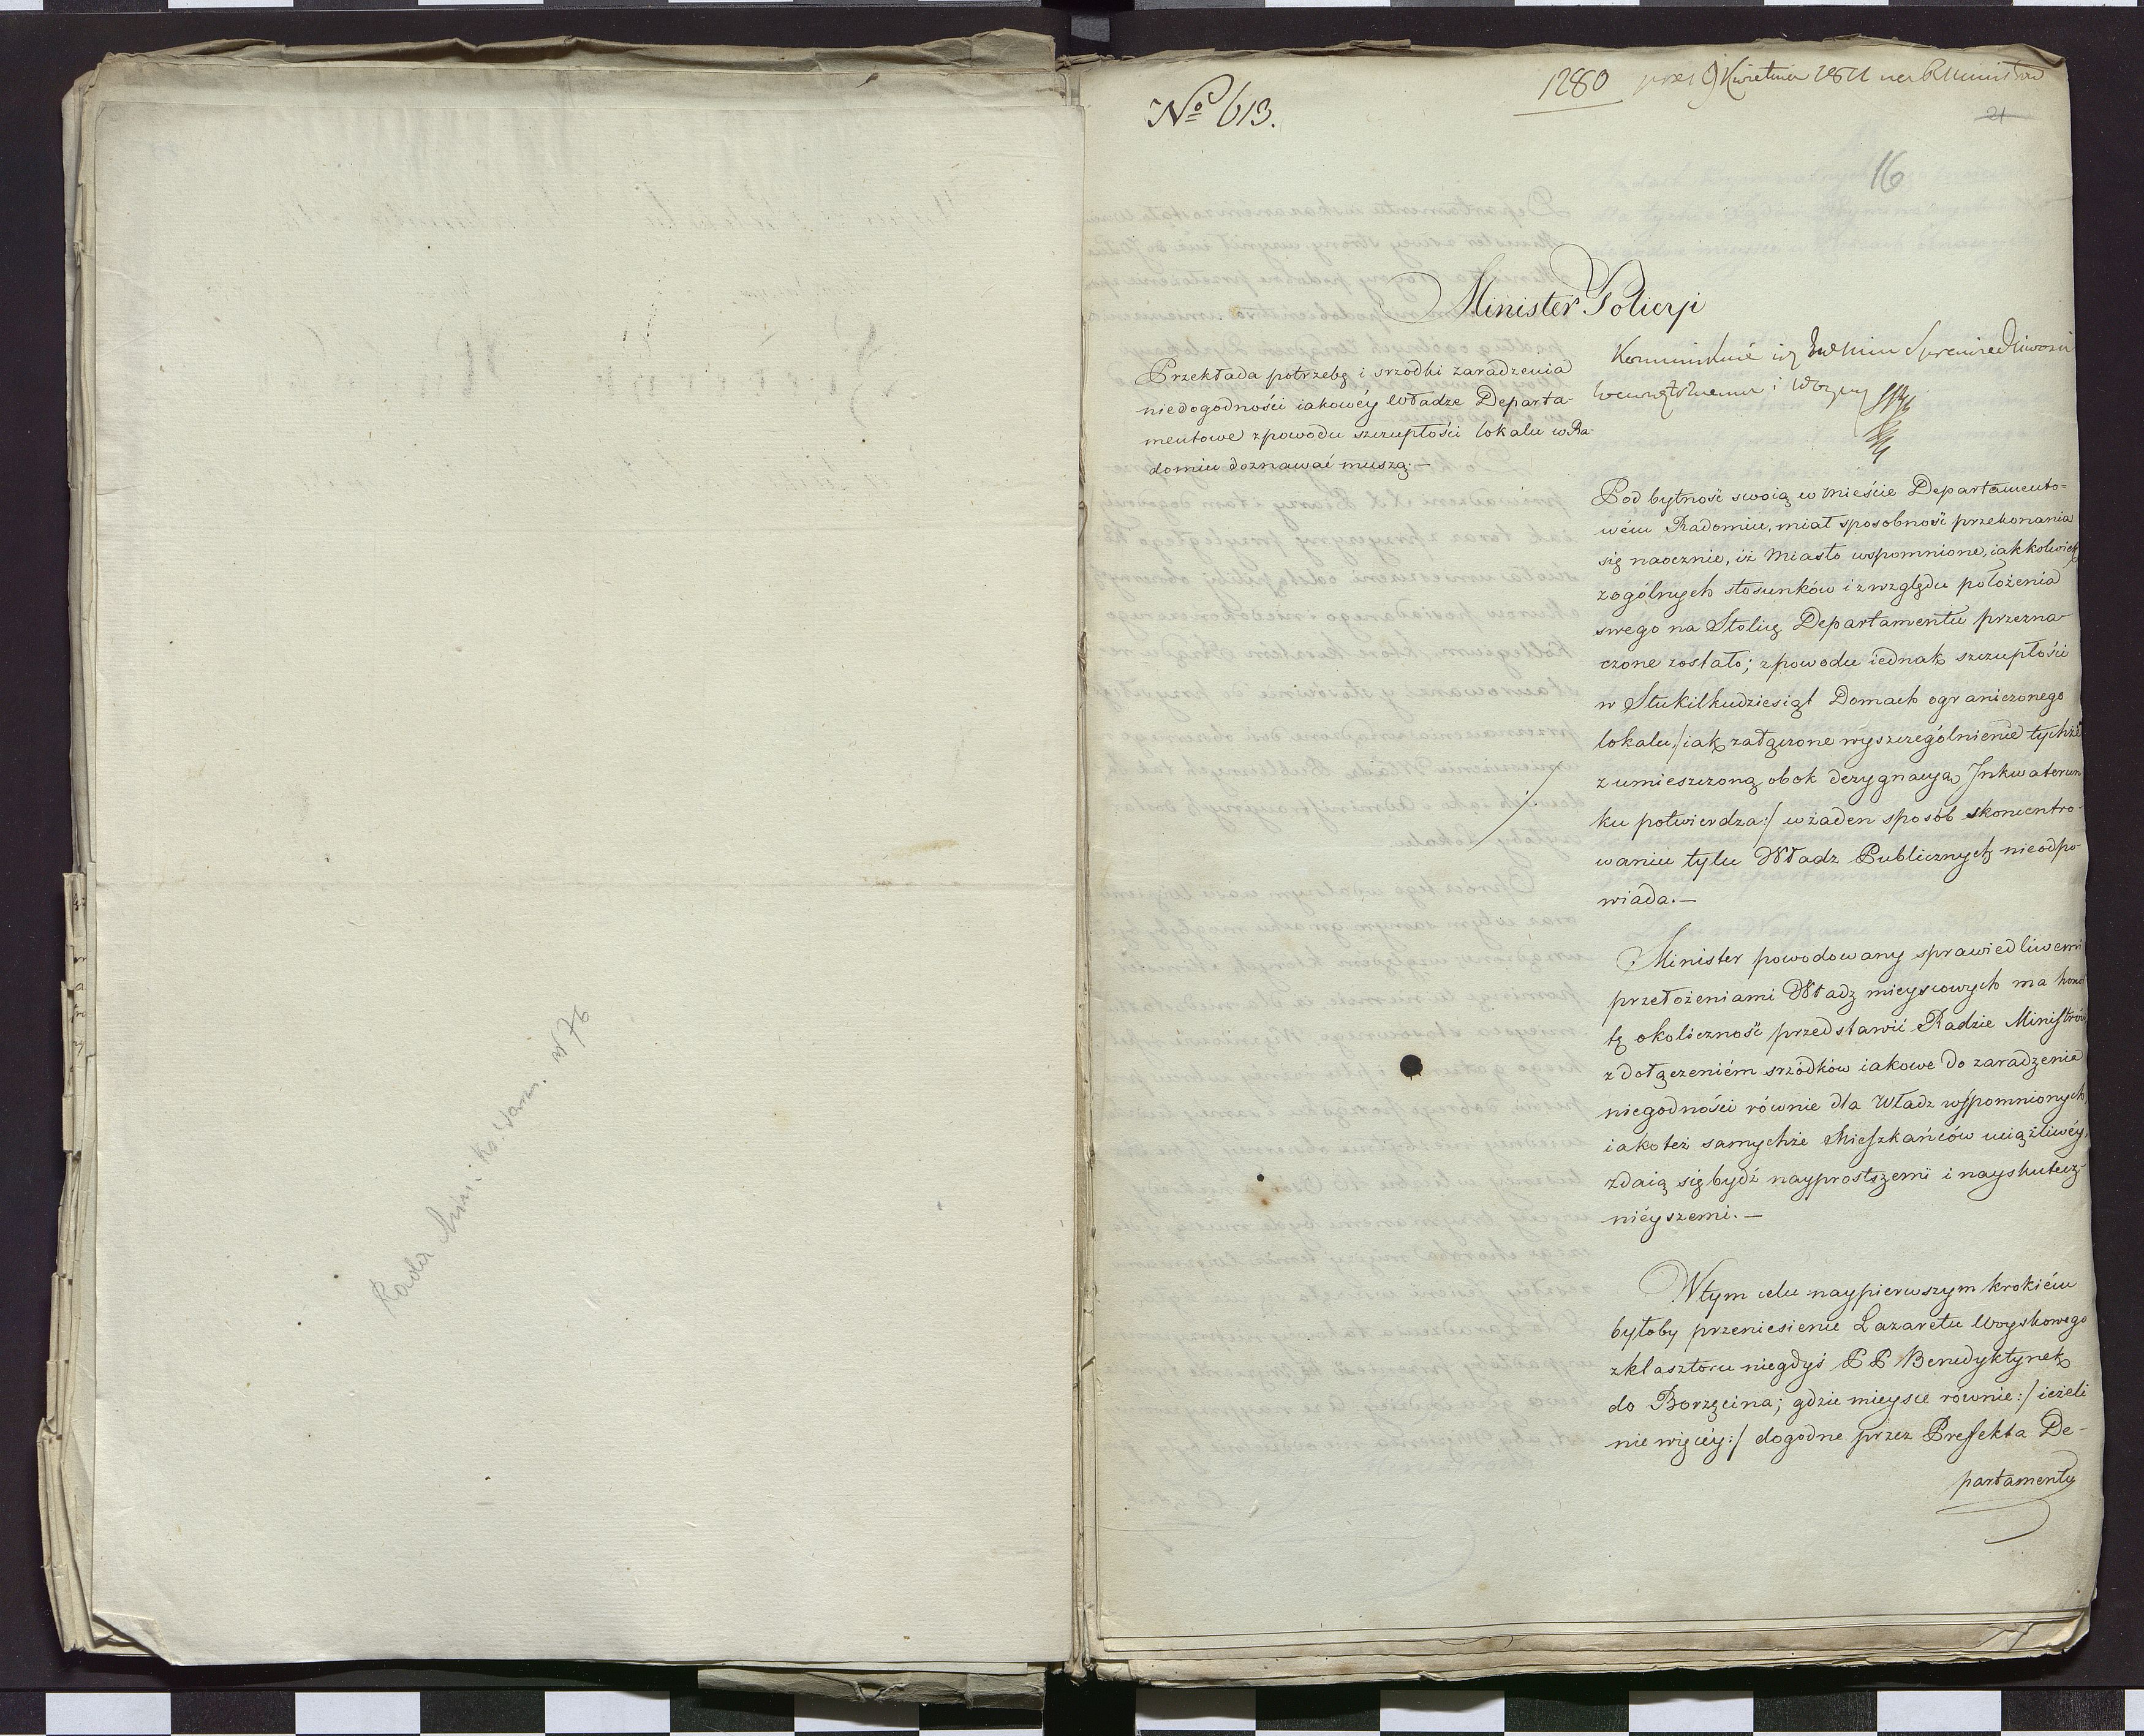 Rada Min. Ks. Warsz. nr 76
1280 9 Kwietnia 1811 na R Ministrów
No 613.
21
16
Minister Policyi
Przekłada potrzebę i srzodki zaradzenia
niedogodności iakowéy Władze Departa-
mentowe zpowodu szczupłości lokalu w Ra-
domiu doznawać muszą. —
Sprawiedliwości
i Woyny
Pod bytność swoią w mieście Departamento-
wém Radomiu, miał sposobność przekonania
się naocznie, iż Miasto wspomnione, iakkolwiek
zogólnych stosunków i zwzględu położenia
swego na Stolicę Departamentu przezna-
czone zostało; zpowodu iednak szczupłości
w Stukilkudziesiąt Domach ograniczonego
lokalu, /:iak załączone wyszczególnienie tychże
z umieszczoną obok dezygnacyą Jnkwaterun
ku potwierdza:/ w żaden sposób skoncentro-
waniu tylu Władz Publicznych nieodpo-
wiada. —
Minister powodowany sprawiedliwemi
przełożeniami Władz mieyscowych ma honor
tę okoliczność przedstawić Radzie Ministrów
z dołączeniém srzódków iakowe do zaradzenia
niegodności równie dla Władz wspomnionych,
iakoteż samychże Mieszkańców uciążliwéy,
zdaią się bydź nayprostszemi i nayskutecz-
niéyszemi. —
W tym celu naypierwszym krokiém
byłoby przeniesienie Lazaretu Woyskowego
zklasztoru niegdyś P P Benedyktynek
do Borzęcina; gdzie mieysce równie:/ ieżeli
nie więcéy:/ dogodne przez Prefekta De-
partamentu